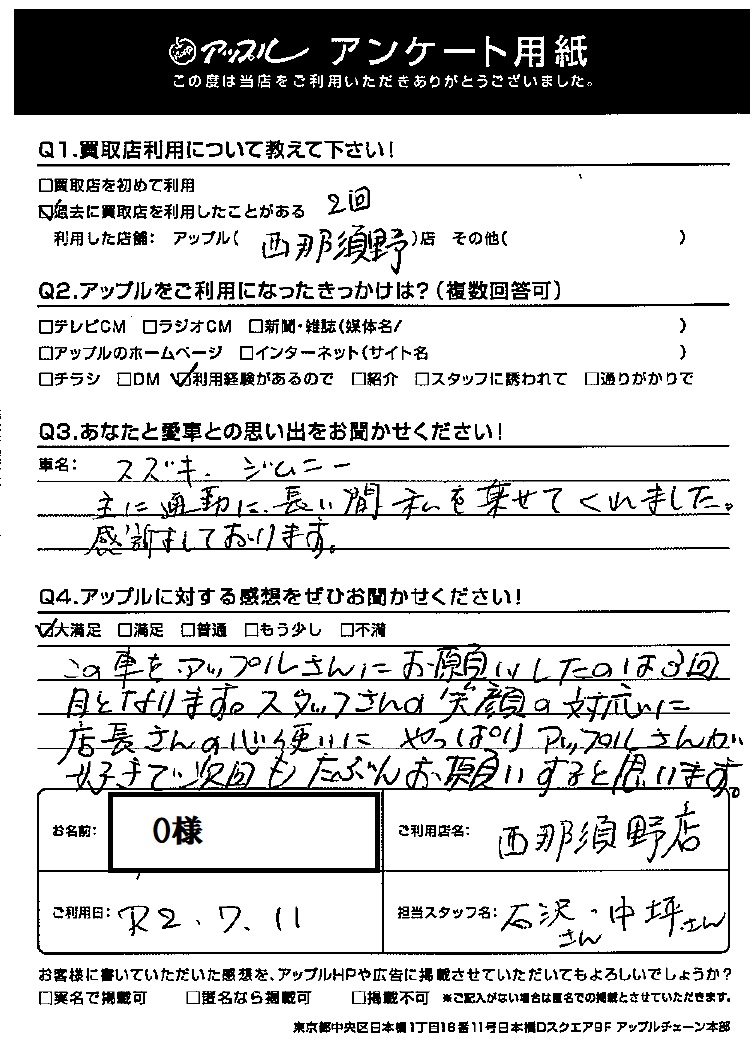 アップル アンケート用紙
この度は当店をご利用いただきありがとうございました。
Q1.買取店利用について教えて下さい!
□買取店を初めて利用
☑過去に買取店を利用したことがある 2回
利用した店舗: アップル( 西那須野 )店 その他( )
Q2.アップルをご利用になったきっかけは?(複数回答可)
□テレビCM □ラジオCM □新聞・雑誌(媒体名/ )
□アップルのホームページ □インターネット(サイト名 )
□チラシ □DM ☑利用経験があるので □紹介 □スタッフに誘われて □通りがかりで
Q3.あなたと愛車との思い出をお聞かせください!
車名: スズキ. ジムニー
主に通勤に、長い間私を乗せてくれました。
感謝しております。
Q4.アップルに対する感想をぜひお聞かせください!
☑大満足 □満足 □普通 □もう少し □不満
この車をアップルさんにお願いしたのは3回
目となります。スタッフさんの笑顔の対応に
店長さんの心使いに やっぱりアップルさんが
好きで次回もたぶんお願いすると思います。
お名前: O様
ご利用店名: 西那須野店
ご利用日: R2.7.11
担当スタッフ名: 石沢さん・中坪さん
お客様に書いていただいた感想を、アップルHPや広告に掲載させていただいてもよろしいでしょうか?
□実名で掲載可 □匿名なら掲載可 □掲載不可 ※ご記入がない場合は匿名での掲載とさせていただきます。
東京都中央区日本橋1丁目16番11号日本橋Dスクエア9F アップルチェーン本部